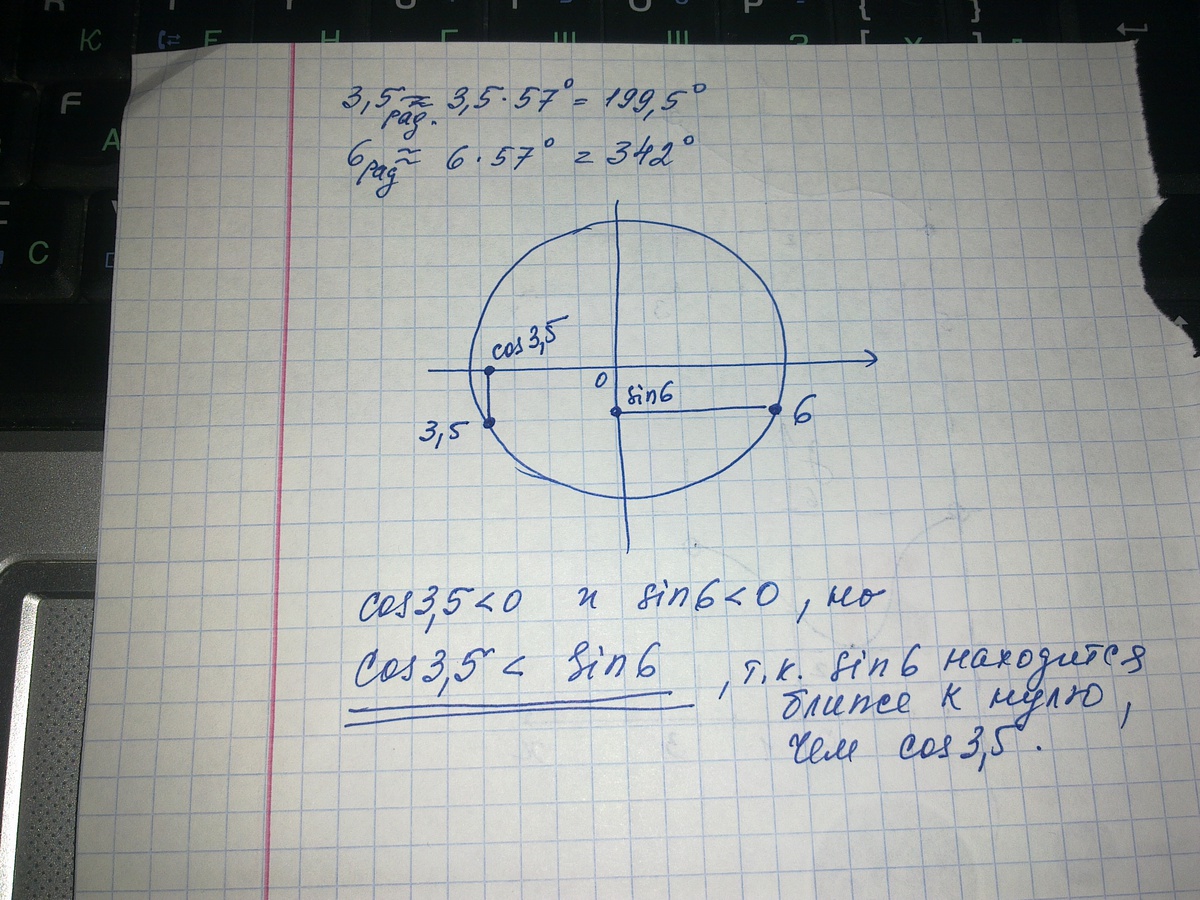 3,5 рад. ≈ 3,5 · 57° = 199,5°
6 рад ≈ 6 · 57° = 342°
cos3,5
0
sin6
3,5
6
cos3,5<0 и sin6<0, но
cos3,5 < sin6, т.к. sin6 находится
ближе к нулю,
чем cos3,5.